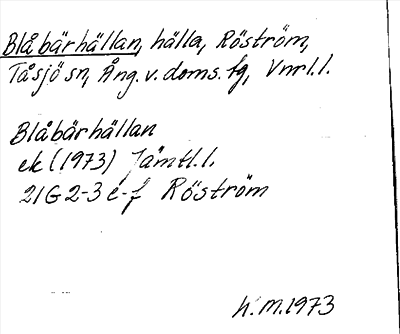 Blåbärhällan, hälla, Röström,
Tåsjö sn, Ång. v. doms. fg, Vnrl. l.
Blåbärhällan
ek (1973) Jämtl. l.
21G 2-3 e-f Röström
H. M. 1973